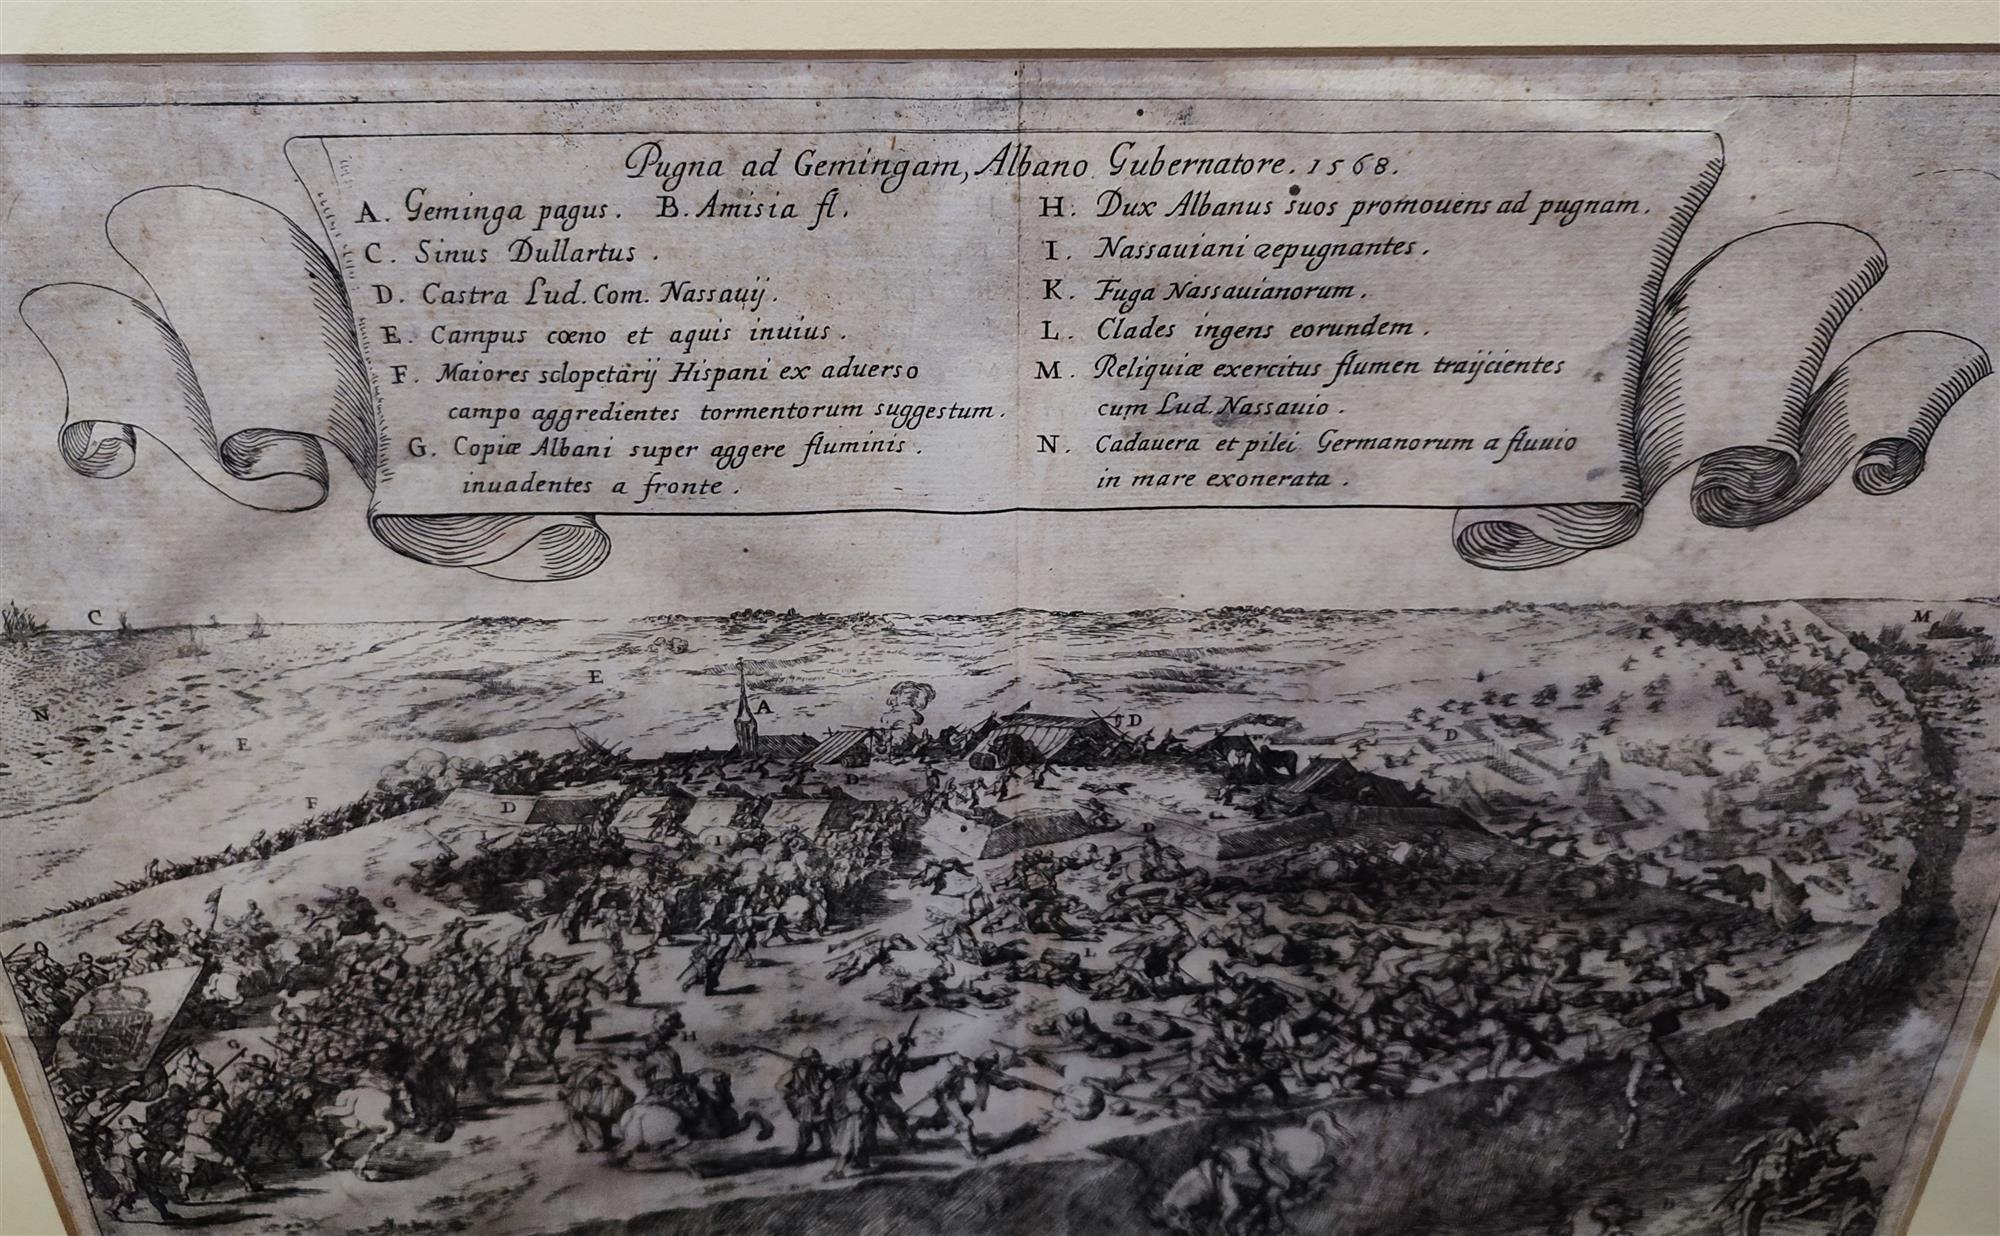 Pugna ad Gemingam, Albano Gubernatore. 1568.
A. Geminga pagus. B. Amisia fl.
C. Sinus Dullartus.
D. Castra Lud. Com. Nassauij.
E. Campus cœno et aquis inuius.
F. Maiores sclopetarij Hispani ex aduerso
campo aggredientes tormentorum suggestum.
G. Copiæ Albani super aggere fluminis.
inuadentes a fronte.
H. Dux Albanus suos promouens ad pugnam.
I. Nassauiani repugnantes.
K. Fuga Nassauianorum.
L. Clades ingens eorundem.
M. Reliquiæ exercitus flumen traijcientes
cum Lud. Nassauio.
N. Cadauera et pilei Germanorum a fluuio
in mare exonerata.
C
M
K
E
N
A
D
E
D
D
F
D
I
D
L
G
L
H
G